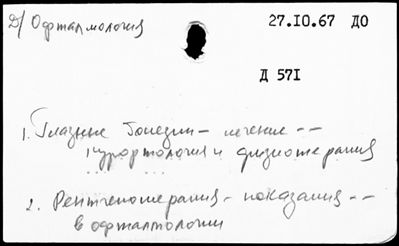 Д/ Офталмология
27.IO.67 ДО
Д 57I
1. Глазные болезни - лечение --
курортология и физиотерапия
2. Рентгенотерапия - показания --
в офталмологии